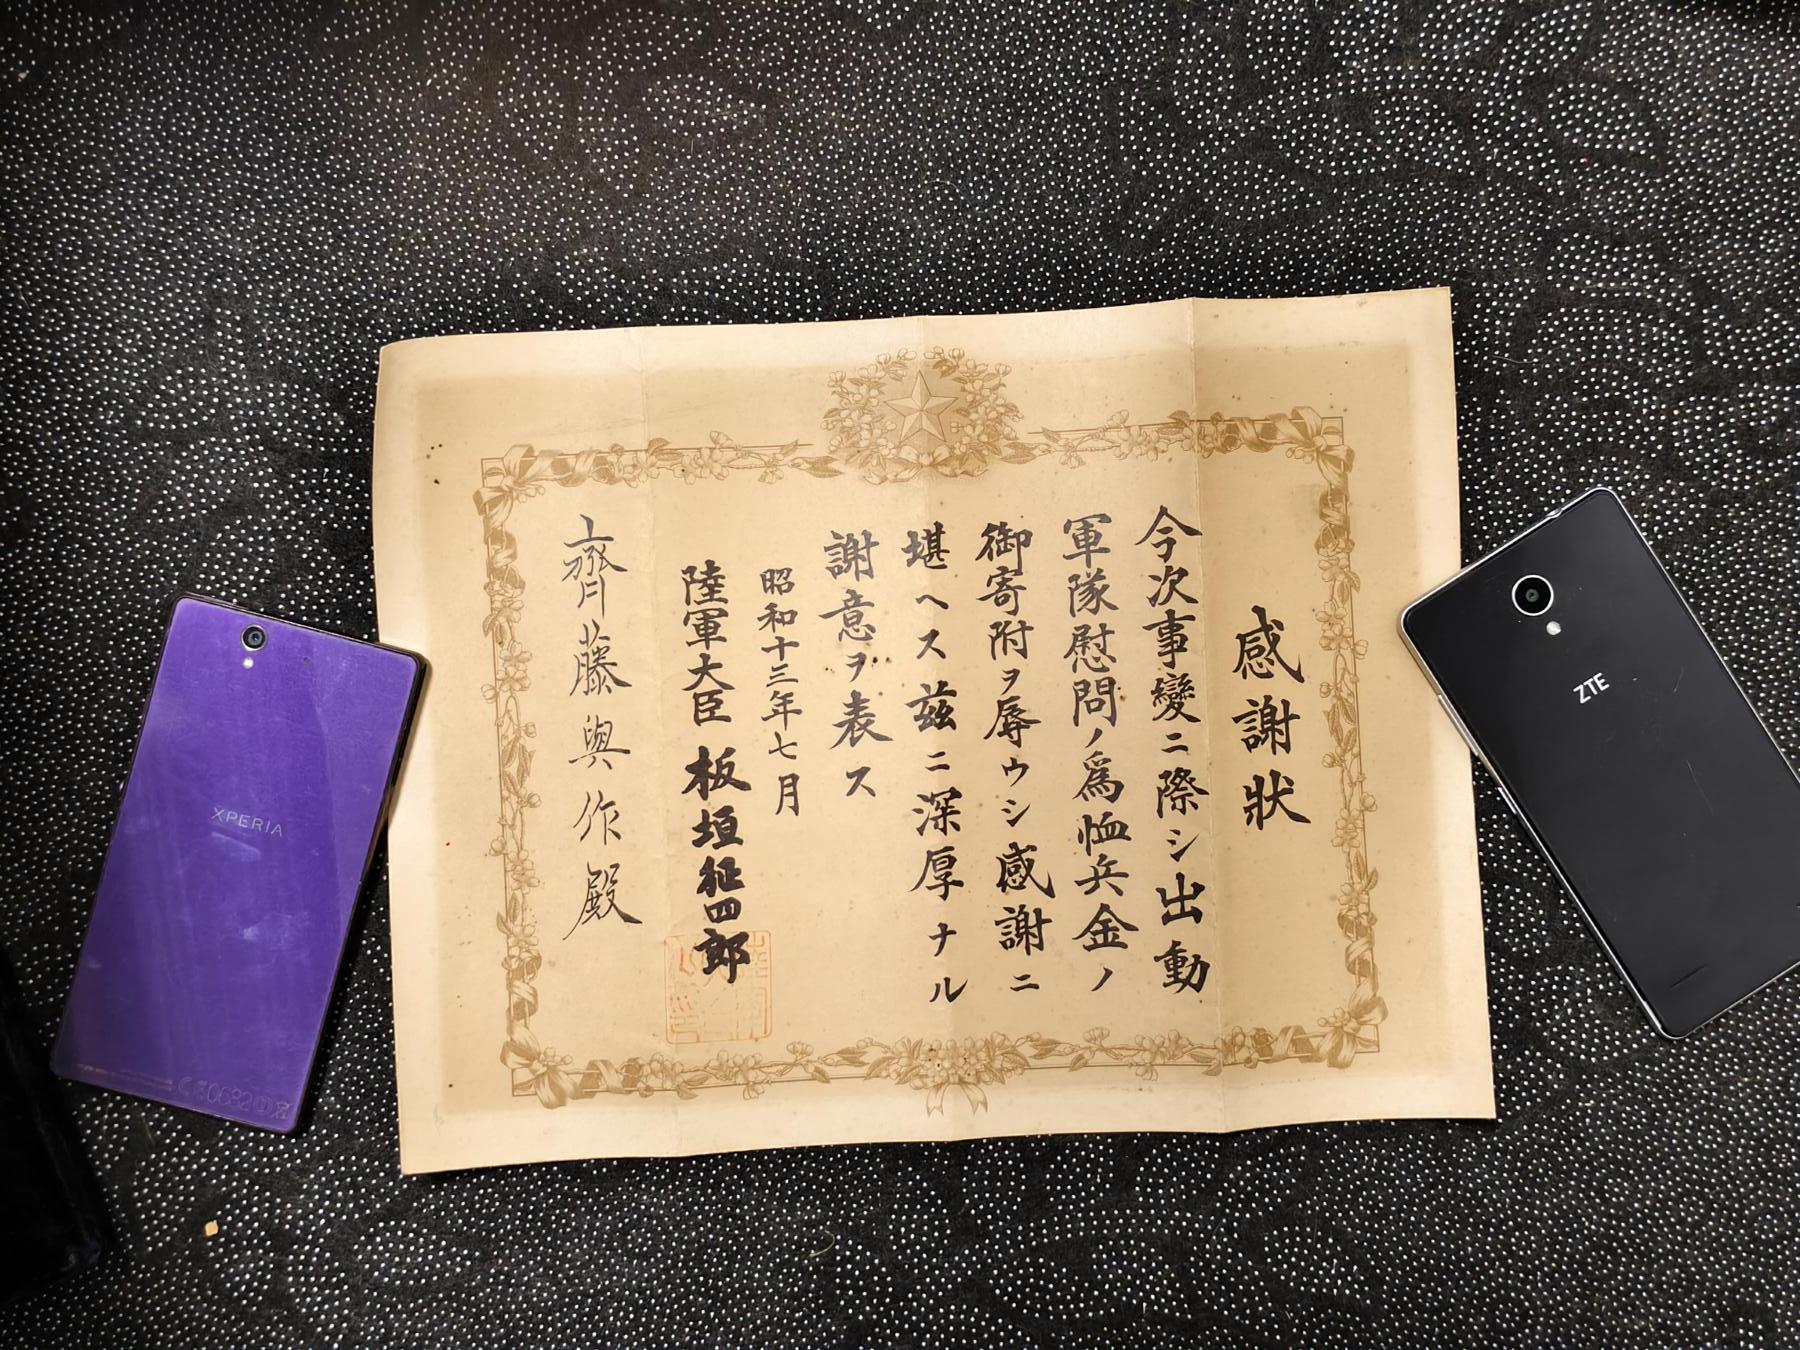 感謝狀
今次事變ニ際シ出動
軍隊慰問ノ爲恤兵金ノ
御寄附ヲ辱ウシ感謝ニ
堪ヘス茲ニ深厚ナル
謝意ヲ表ス
昭和十三年七月
陸軍大臣 板垣征四郎
齊藤與作殿
XPERIA
CE0682
ZTE